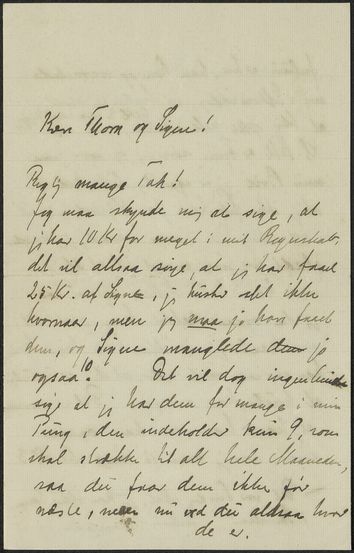 Kære Thora og Signe!
Rigtig mange Tak!
Jeg maa skynde mig at sige, at
jeg har 10 Kr for meget i mit Regnskab,
det vil altsaa sige, at jeg har faaet
25 Kr. af Signe, jeg husker det ikke
hvornaar, men jeg maa jo have faaet
dem, og Signe manglede dem jo
ogsaa! Det vil dog ingenlunde
sige at jeg har dem for mange i min
Pung, den indeholder kun 9, som
skal strække til alt hele Maaneden,
saa du faar dem ikke før
næste, men nu ved du altsaa hvor
de er.